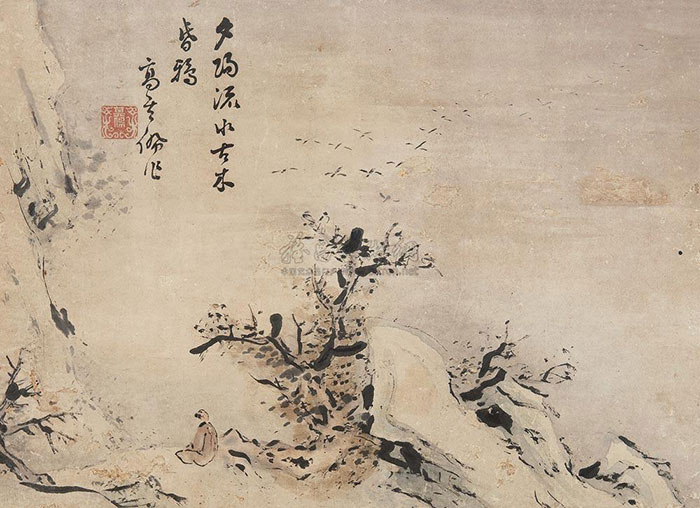 夕陽流水古木
昏鴉
高其佩作